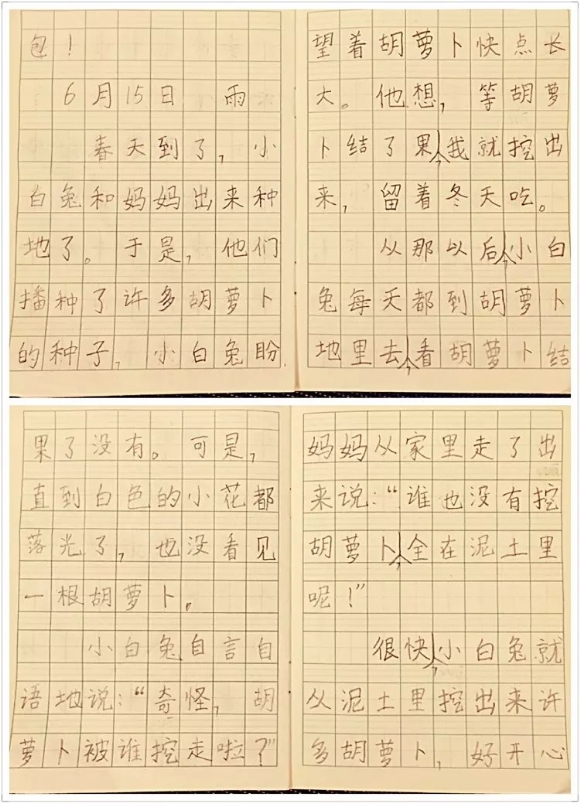 包！
6月15日 雨
春天到了，小
白兔和妈妈出来种
地了。于是，他们
播种了许多胡萝卜
的种子，小白兔盼
望着胡萝卜快点长
大。他想，等胡萝
卜结了果，我就挖出
来，留着冬天吃。
从那以后，小白
兔每天都到胡萝卜
地里去，看胡萝卜结
果了没有。可是，
直到白色的小花都
落光了，也没看见
一根胡萝卜。
小白兔自言自
语地说：“奇怪，胡
萝卜被谁挖走啦？”
妈妈从家里走了出
来说：“谁也没有挖
胡萝卜，全在泥土里
呢！”
很快，小白兔就
从泥土里挖出来许
多胡萝卜，好开心